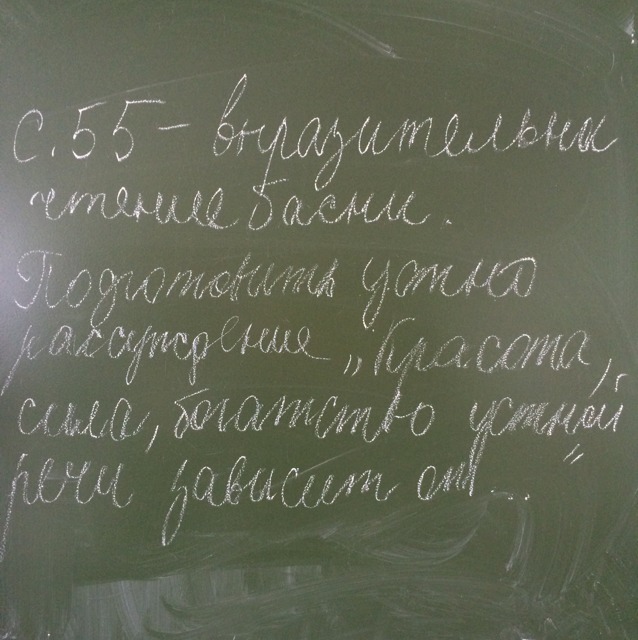 с. 55 – выразительное
чтение басни.
Подготовить устно
рассуждение „Красота,
сила, богатство устной
речи зависит от..."